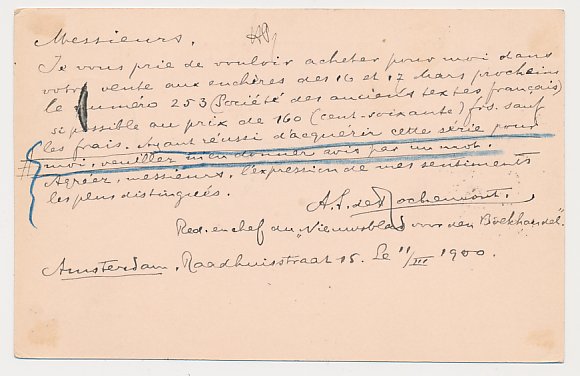 Messieurs.
Je vous prie de vouloir acheter pour moi dans
votre vente aux enchères des 16 et 17 Mars prochains
le numéro 253 (Société des anciens textes français)
si possible au prix de 160 (cent-soixante) frs. sauf
les frais. Ayant réussi d'acquérir cette série pour
moi, veuillez m'en donner avis par un mot.
Agréez, messieurs, l'expression de mes sentiments
les plus distingués.
A. S. de Rochemont.
Red. en chef du „Nieuwsblad voor den Boekhandel"
Amsterdam, Raadhuisstraat 15. Le 11/III 1900.